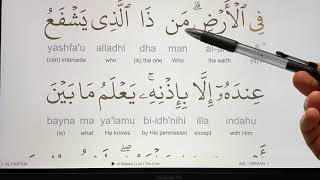 فِي ٱلْأَرْضِ ۗ مَن ذَا ٱلَّذِي يَشْفَعُ
yashfa'u alladhi dha man al-ar
(can) intercede who (is) the one Who the earth
عِندَهُۥٓ إِلَّا بِإِذْنِهِۦ ۚ يَعْلَمُ مَا بَيْنَ
bayna ma ya'lamu bi-idh'nihi illa indahu
(is) what He knows by His permission except with Him